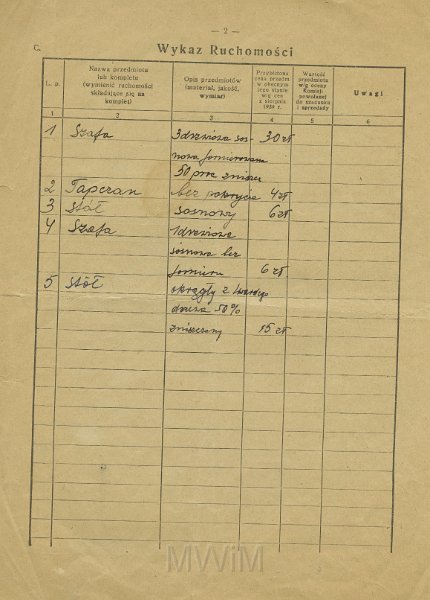 — 2 —
C.
Wykaz Ruchomości
L. p.
Nazwa przedmiotu
lub kompletu
(wymienić ruchomości
składające się na
komplet)
Opis przedmiotów
(materiał, jakość,
wymiar)
Przybliżona
cena przedm.
w obecnym
jego stanie
wg cen
z sierpnia
1939 r.
Wartość
przedmiotu
wg oceny
Komisji
powołanej
do szacunku
i sprzedaży
Uwagi
1 2 3 4 5 6
1 Szafa 3 drzwiowa sos-
nowa fornirowana
50 proc znisz 30 zł
2 Tapczan bez pokrycia 4 zł
3 Stół sosnowy 6 zł
4 Szafa 1 drzwiowa
sosnowa bez
forniru 6 zł
5 Stół okrągły z twardego
drzewa 50%
zniszczony 15 zł
MWiM